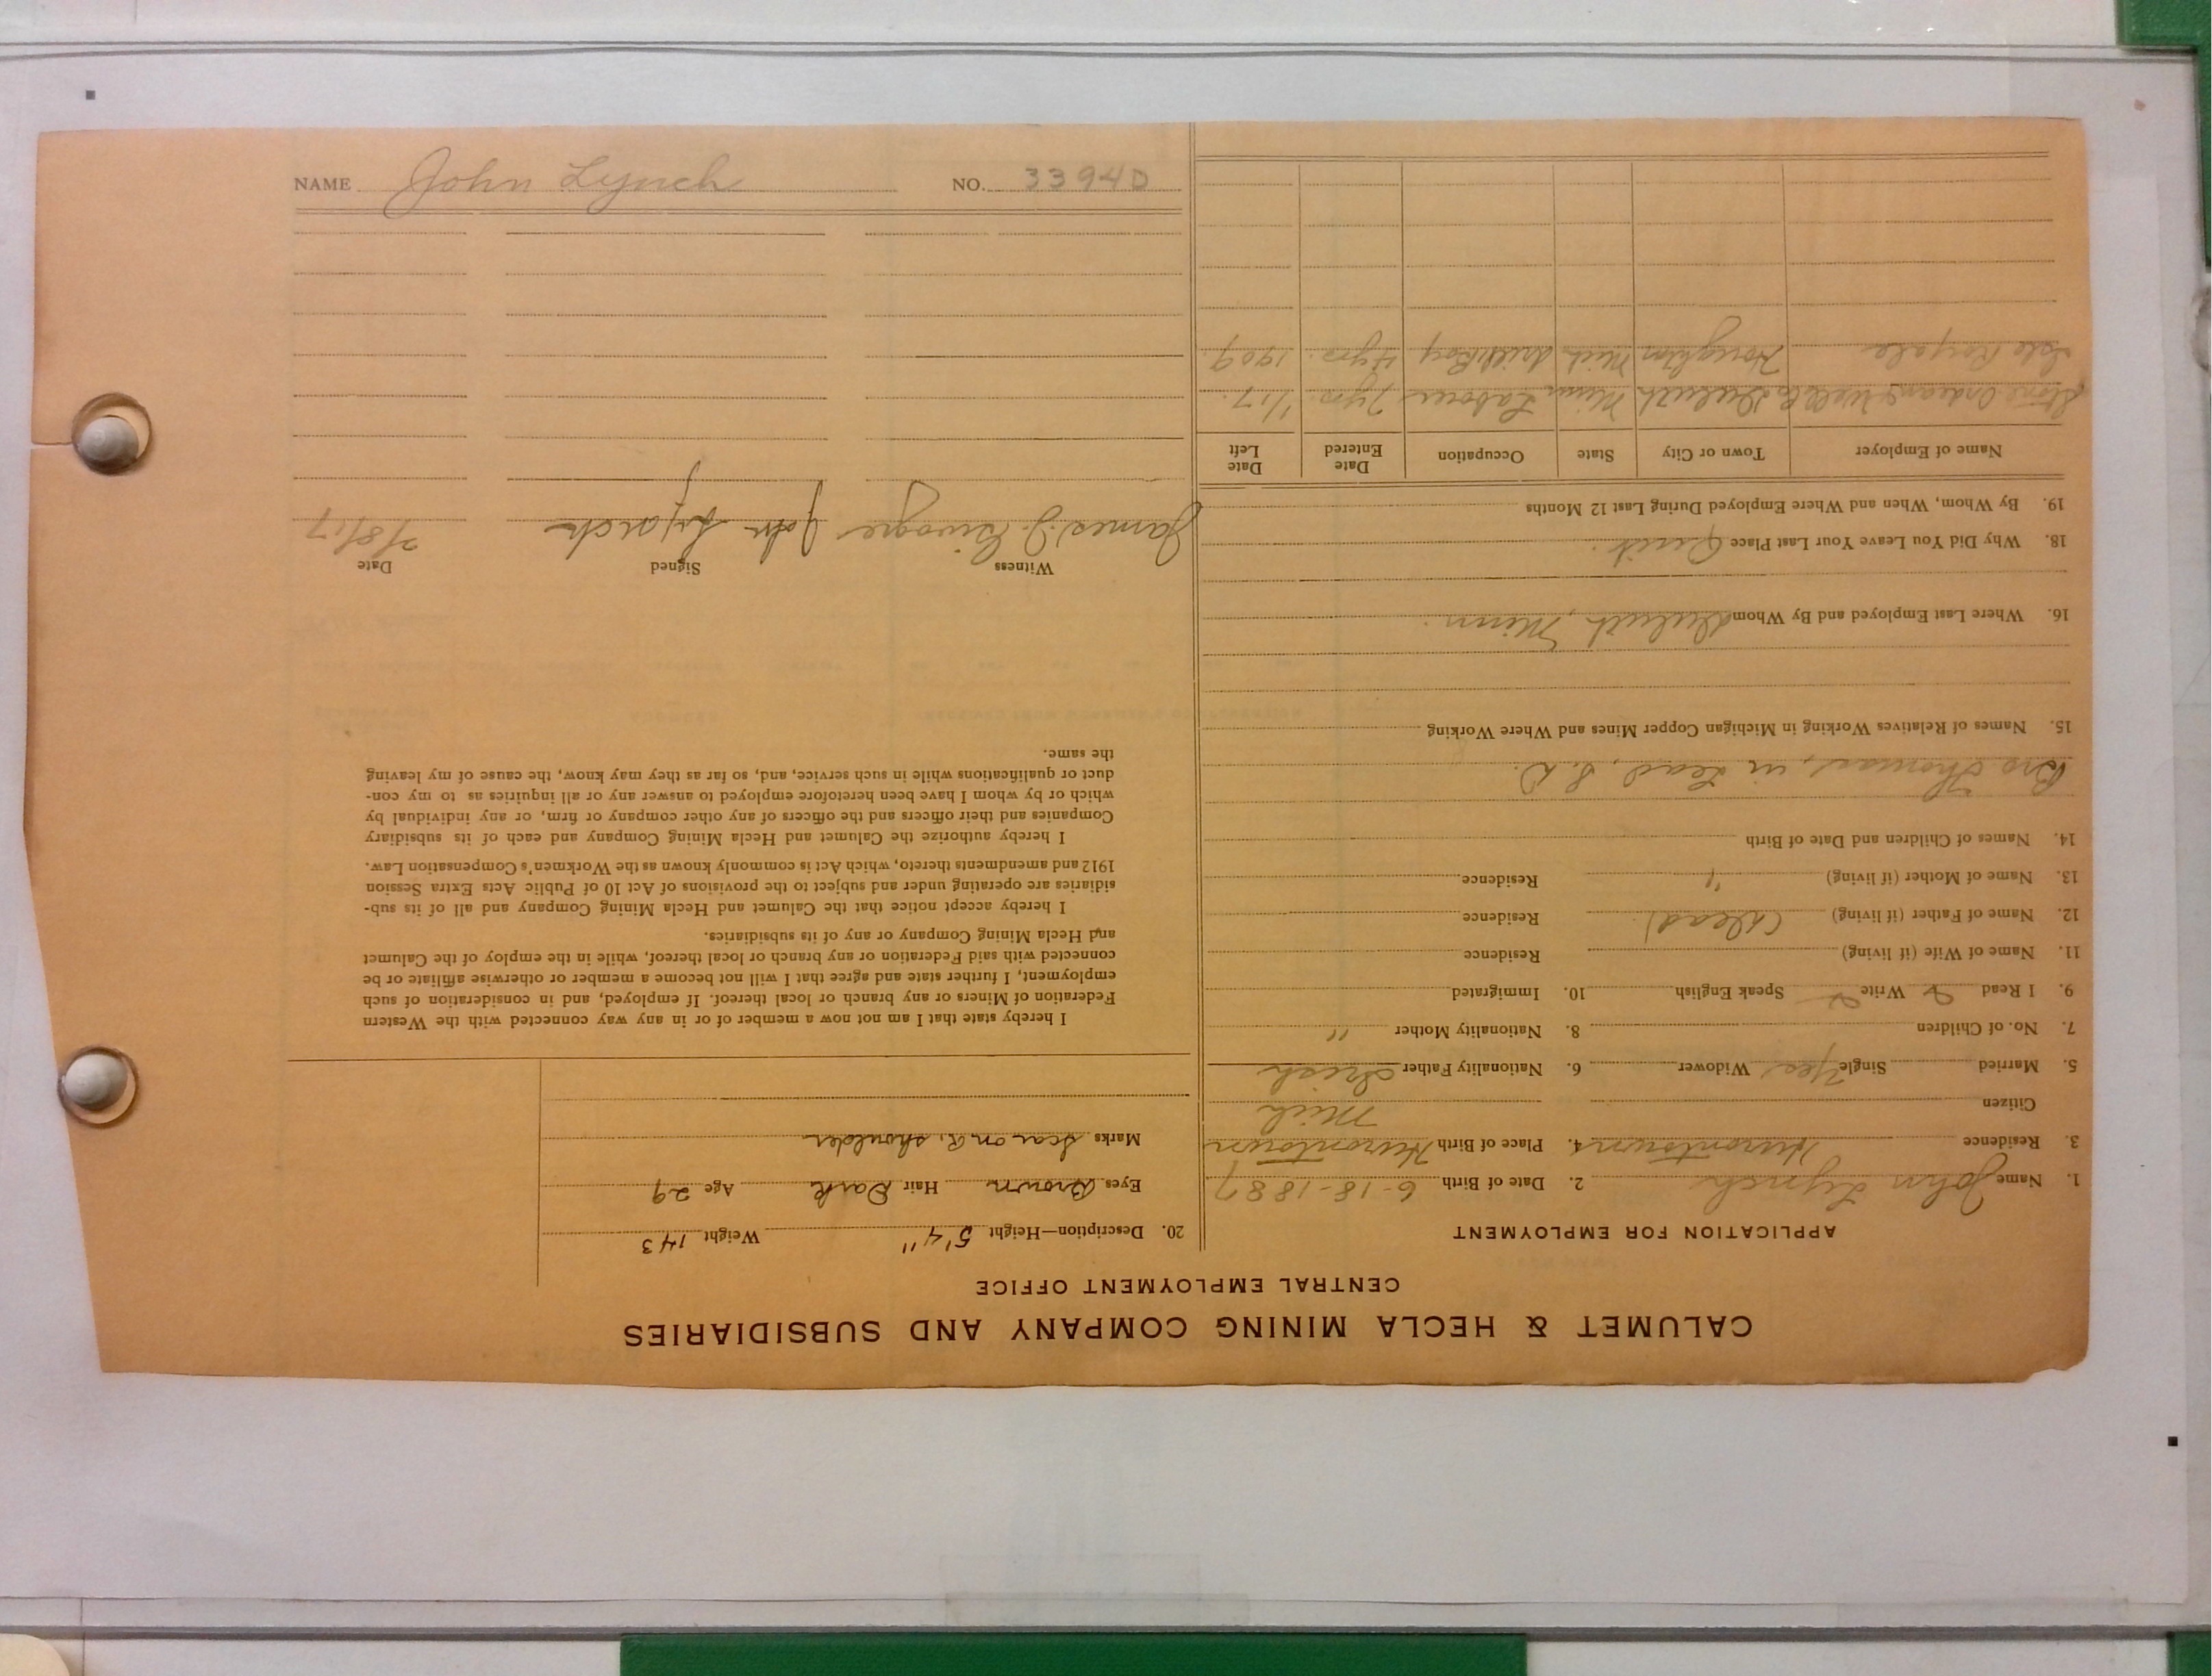 CALUMET & HECLA MINING COMPANY AND SUBSIDIARIES
CENTRAL EMPLOYMENT OFFICE
APPLICATION FOR EMPLOYMENT
1. Name John Lynch 2. Date of Birth 6-18-1887
3. Residence Hurontown 4. Place of Birth Hurontown
Citizen Mich
5. Married Single Yes Widower 6. Nationality Father Irish
7. No. of Children 8. Nationality Mother "
9. I Read Write Speak English 10. Immigrated
11. Name of Wife (if living) Residence
12. Name of Father (if living) (dead) Residence
13. Name of Mother (if living) " Residence
14. Names of Children and Date of Birth
Bro Thomas, in Lead, S. D.
15. Names of Relatives Working in Michigan Copper Mines and Where Working
16. Where Last Employed and By Whom Duluth, Minn.
18. Why Did You Leave Your Last Place Quit.
19. By Whom, When and Where Employed During Last 12 Months
Name of Employer Town or City State Occupation Date Entered Date Left
Stone Ordean Wells Co Duluth Minn Laborer 7yrs. 1/17.
Isle Royale Houghton Mich drill Boy 4yrs. 1909.
20. Description—Height 5'4" Weight 143
Eyes Brown Hair Dark Age 29
Marks Scar on R. shoulder
I hereby state that I am not now a member of or in any way connected with the Western
Federation of Miners or any branch or local thereof. If employed, and in consideration of such
employment, I further state and agree that I will not become a member or otherwise affiliate or be
connected with said Federation or any branch or local thereof, while in the employ of the Calumet
and Hecla Mining Company or any of its subsidiaries.
I hereby accept notice that the Calumet and Hecla Mining Company and all of its sub-
sidiaries are operating under and subject to the provisions of Act 10 of Public Acts Extra Session
1912 and amendments thereto, which Act is commonly known as the Workmen's Compensation Law.
I hereby authorize the Calumet and Hecla Mining Company and each of its subsidiary
Companies and their officers and the officers of any other company or firm, or any individual by
which or by whom I have been heretofore employed to answer any or all inquiries as to my con-
duct or qualifications while in such service, and, so far as they may know, the cause of my leaving
the same.
Witness Signed Date
James J. John Lynch 2/8/17
NAME John Lynch NO. 3394D